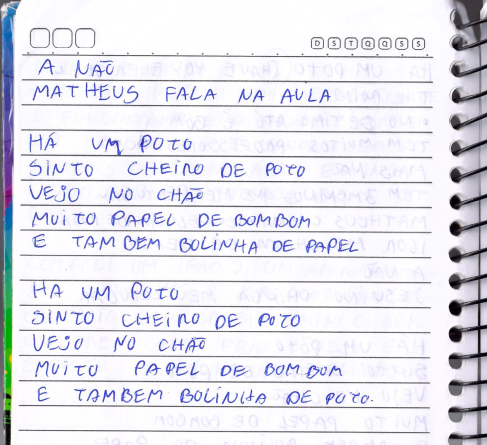 D S T Q Q S S
A NÃO
MATHEUS FALA NA AULA
HÁ UM POTO
SINTO CHEIRO DE POTO
VEJO NO CHÃO
MUITO PAPEL DE BOMBOM
E TAMBEM BOLINHA DE PAPEL
HA UM POTO
SINTO CHEIRO DE POTO
VEJO NO CHÃO
MUITO PAPEL DE BOMBOM
E TAMBEM BOLINHA DE POTO.